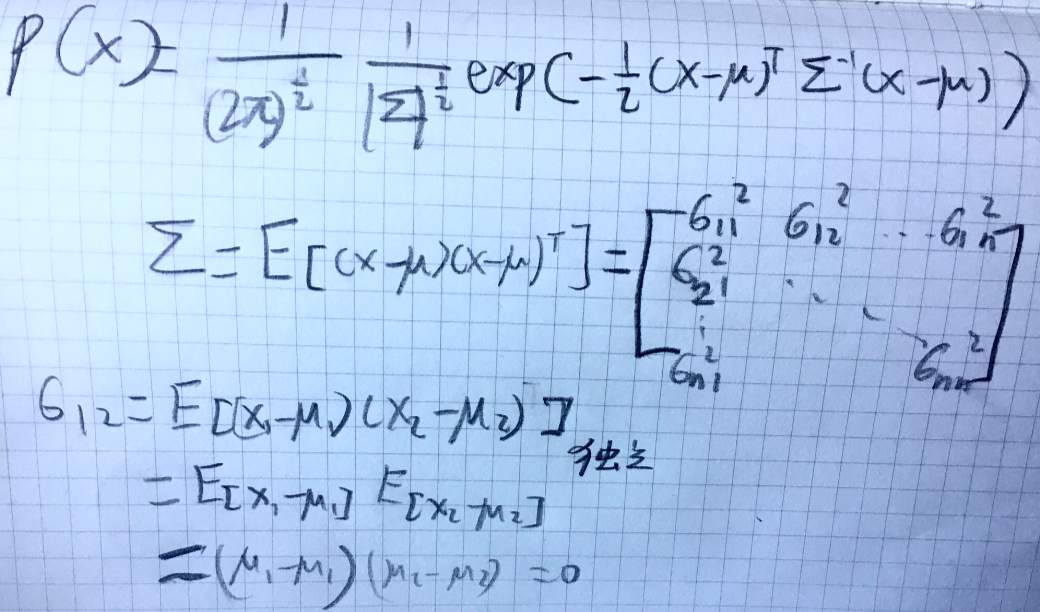 P(x) = \frac{1}{(2π)^{\frac{1}{2}}} \frac{1}{|Σ|^{\frac{1}{2}}} exp(-\frac{1}{2}(x-μ)^T Σ^{-1}(x-μ))
Σ = E[(x-μ)(x-μ)^T] = \begin{bmatrix} σ_{11}^2 & σ_{12}^2 & \cdots & σ_{1n}^2 \\ σ_{21}^2 & \ddots & & \\ \vdots & & \ddots & \\ σ_{n1}^2 & & & σ_{nn}^2 \end{bmatrix}
σ_{12} = E[(x_1-μ_1)(x_2-μ_2)]
独立
= E[x_1-μ_1] E[x_2-μ_2]
= (μ_1-μ_1)(μ_2-μ_2) = 0